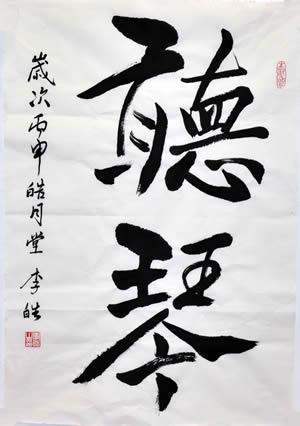 聽琴
歲次丙申皓月堂 李皓